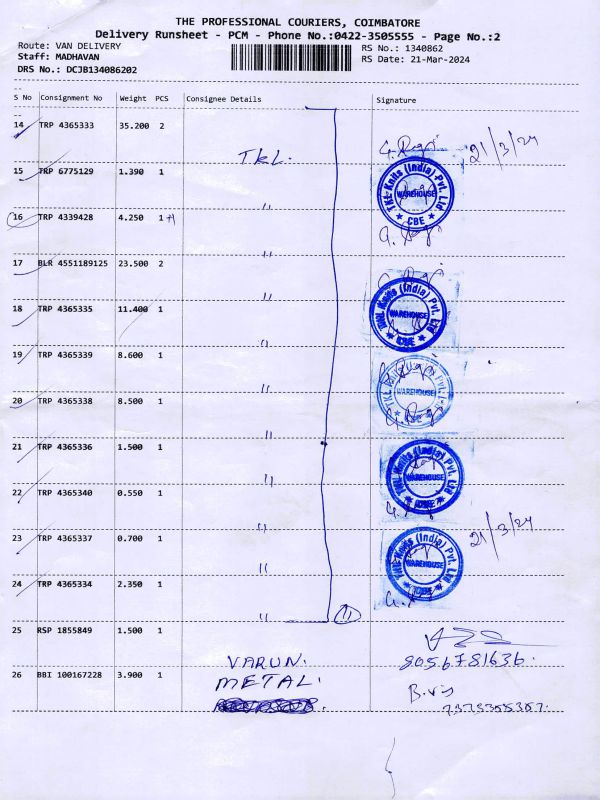 THE PROFESSIONAL COURIERS, COIMBATORE
Delivery Runsheet - PCM - Phone No.:0422-3505555 - Page No.:2
Route: VAN DELIVERY RS No.: 1340862
Staff: MADHAVAN RS Date: 21-Mar-2024
DRS No.: DCJB134086202
S No Consignment No Weight PCS Consignee Details Signature
14 TRP 4365333 35.200 2
TKL. 21/3/24
15 TRP 6775129 1.390 1
TKL Knits (India) Pvt. Ltd
WAREHOUSE
CBE
"
16 TRP 4339428 4.250 1
"
17 BLR 4551189125 23.500 2
"
18 TRP 4365335 11.400 1
TKL Knits (India) Pvt. Ltd
WAREHOUSE
CBE
"
19 TRP 4365339 8.600 1
"
20 TRP 4365338 8.500 1
WAREHOUSE
"
21 TRP 4365336 1.500 1
"
22 TRP 4365340 0.550 1
TKL Knits (India) Pvt. Ltd
WAREHOUSE
CBE
"
23 TRP 4365337 0.700 1
21/3/24
"
24 TRP 4365334 2.350 1
TKL Knits (India) Pvt. Ltd
WAREHOUSE
CBE
" 11
25 RSP 1855849 1.500 1
VARUN. 8056781636.
26 BBI 100167228 3.900 1
METAL.